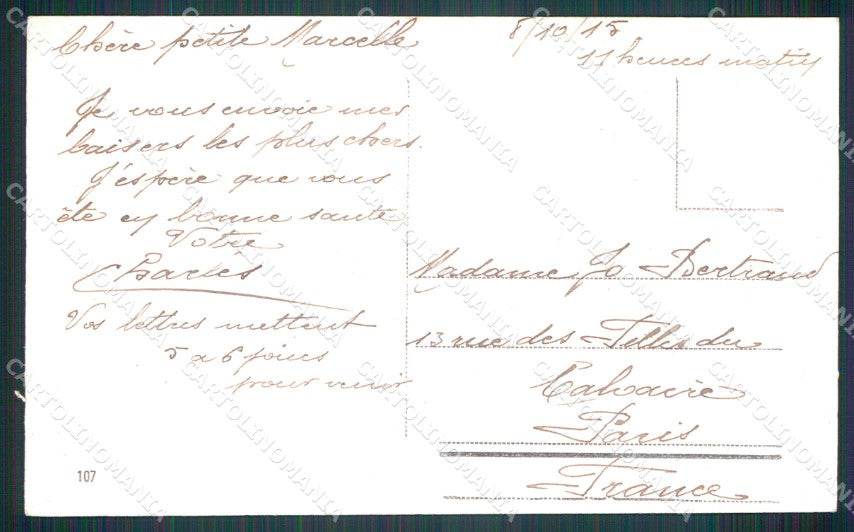 Chère petite Marcelle
8/10/15
11 heures matin
Je vous envoie mes
baisers les plus chers.
J'espère que vous
ête en bonne santé
Votre
Charles
Vos lettres mettent
5 a 6 jours
pour venir
Madame Jo Bertrand
13 rue des Filles du
Calvaire
Paris
France
107
CARTOLINOMANIA